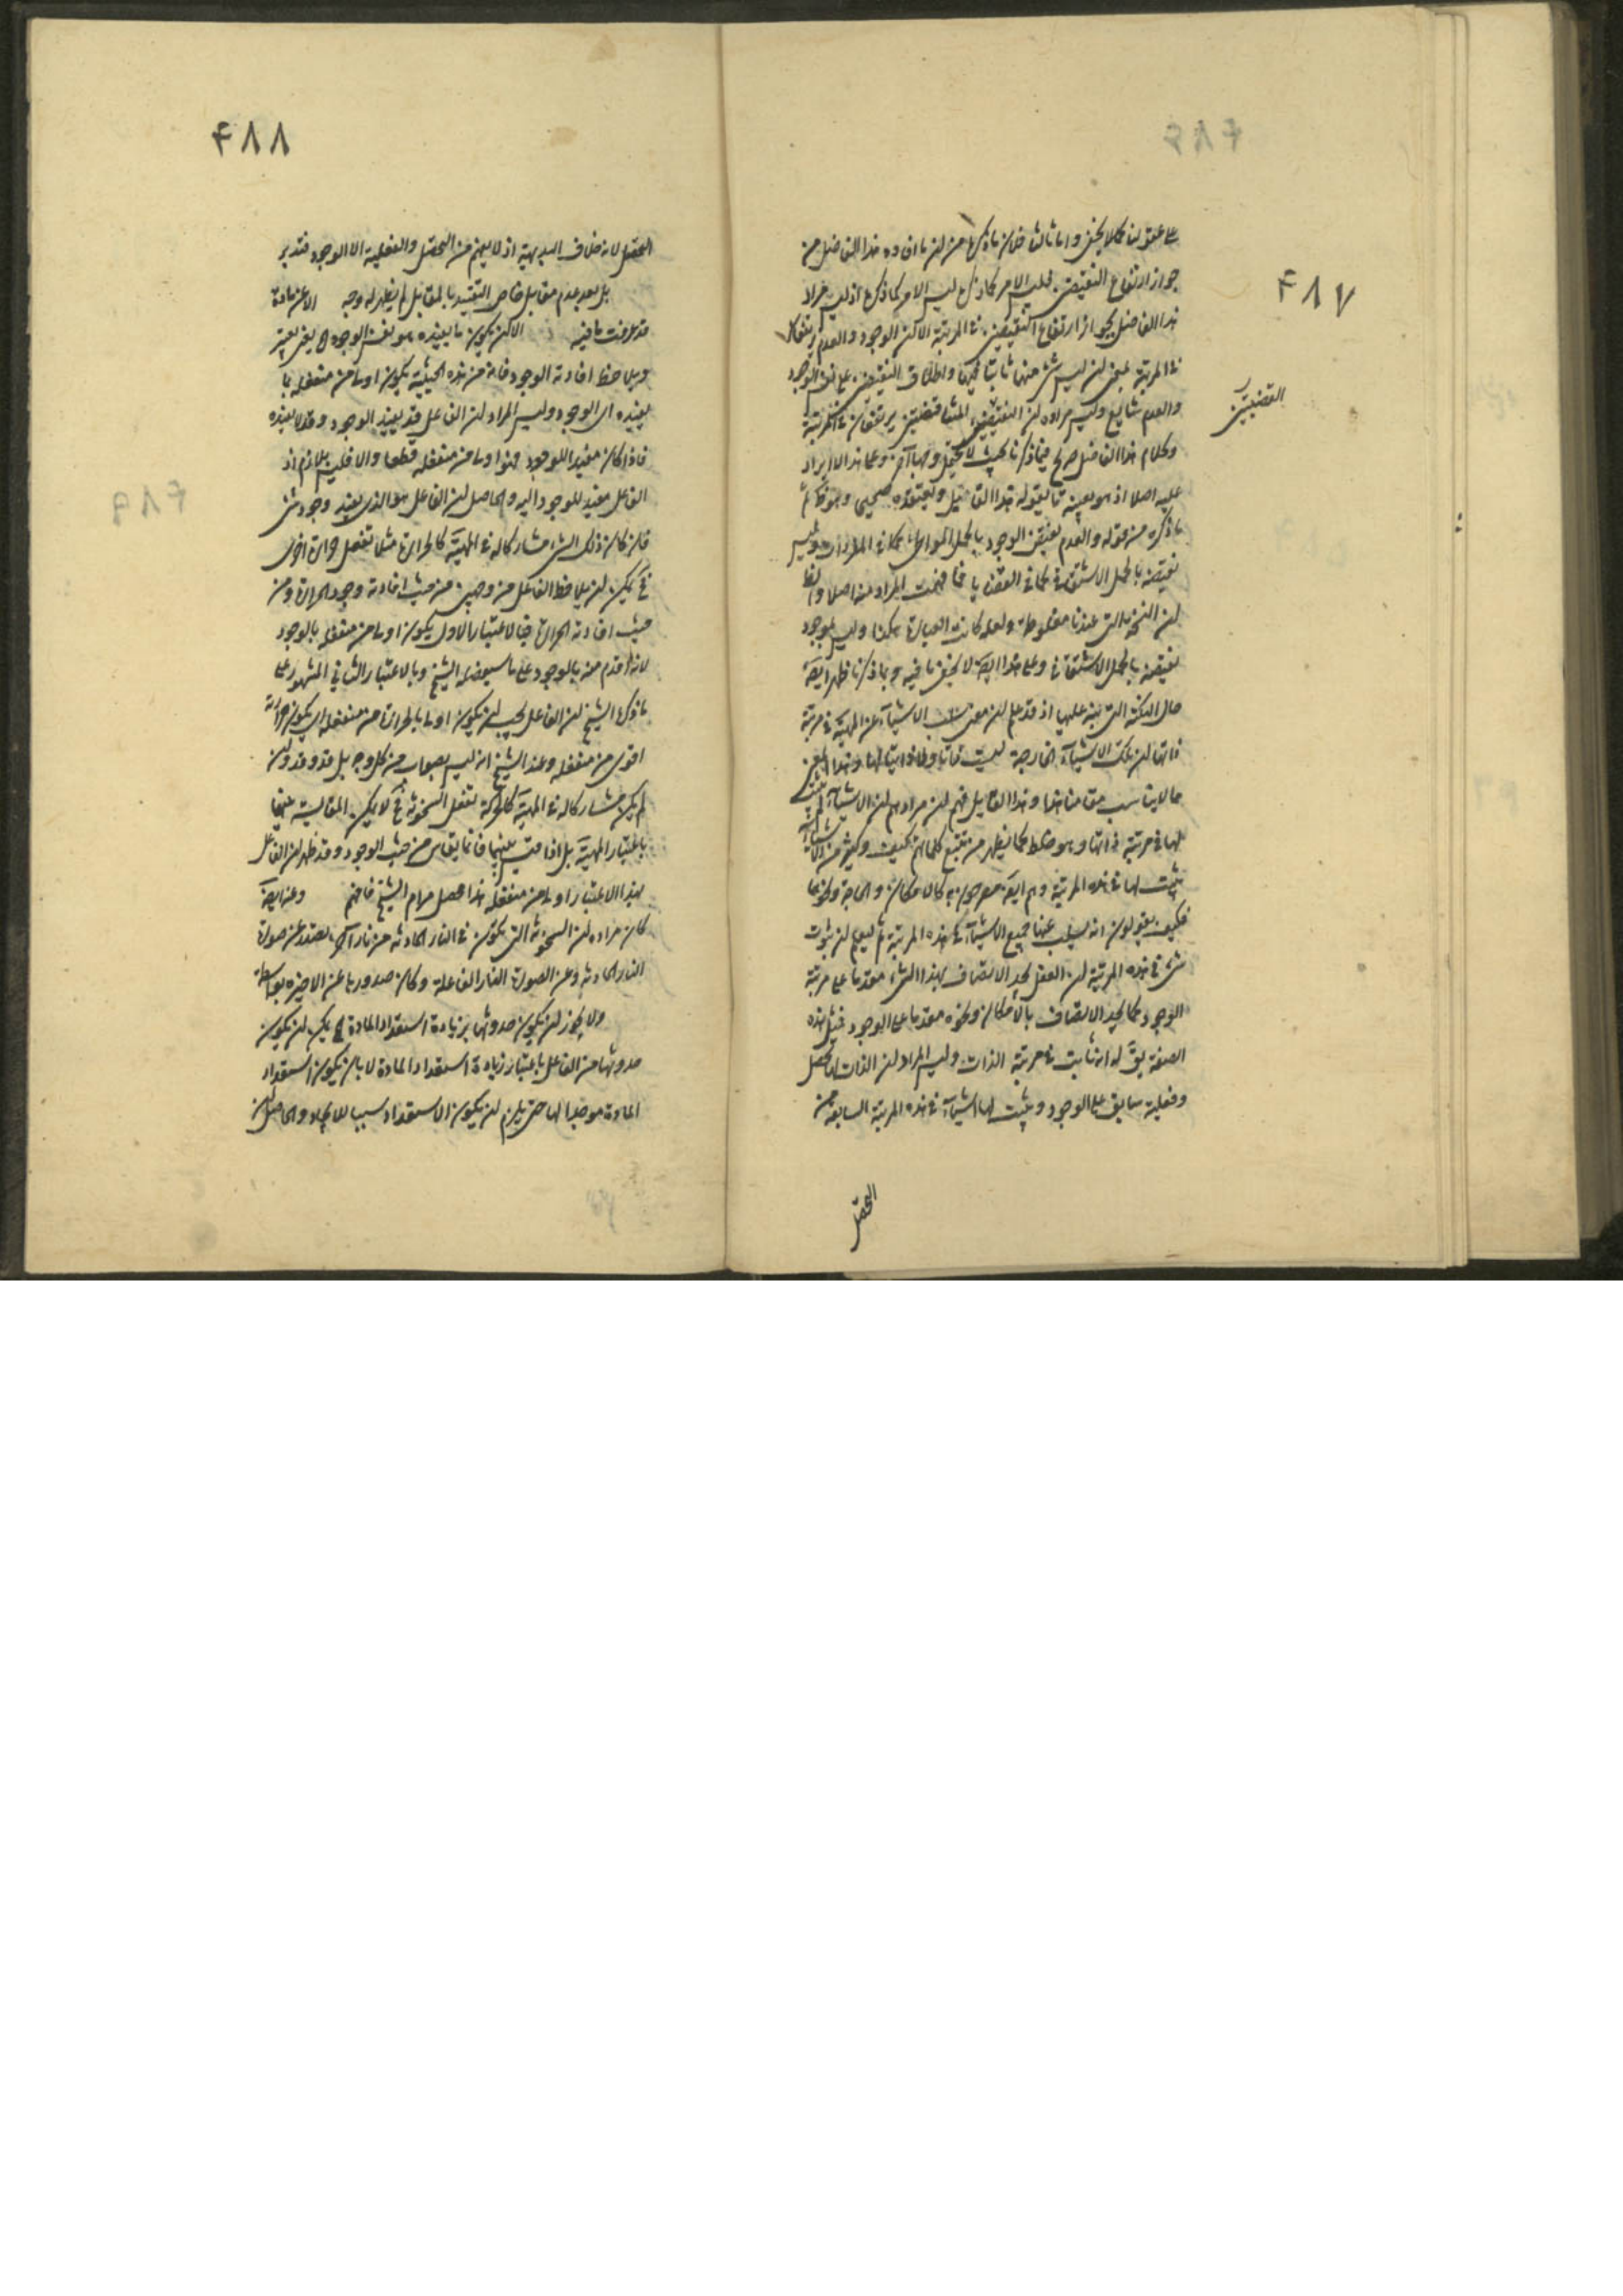 ۴۸۷
على عقولنا كما لا يخفى واما ثالثا فلان ما ذكره من ان ما افاده هذا الفاضل من
جواز ارتفاع النقيضين فليس الامر كما ذكره ليس الامر كما ذكره اذ ليس مراد
هذا الفاضل بجواز ارتفاع النقيضين في المرتبة الا ان الوجود والعدم يرتفعان
في المرتبة بمعنى ان ليس شئ منهما ثابتا فيها واطلاق النقيضين على نفس الوجود
والعدم شايع وليس مراده ان النقيضين المتناقضين يرتفعان في المرتبة
القضيتين
وكلام هذا الفاضل صريح فيما ذكرنا بحيث لا يحتمل وجها آخر وعلى هذا لا ايراد
عليه اصلا اذ هو بعينه ما يقوله هذا القائل ويعتقده
ما ذكره من قوله والعدم نقيض الوجود بالحمل المواطاة كما في المفردات وليس
نقيضه بالحمل الاشتقاق كما في القضايا فما فهمت المراد منه اصلا والظ
ان النسخة التي عندنا مغلوطة ولعله كانت العبارة هكذا وليس الموجود
نقيضه بالحمل الاشتقاقي وعلى هذا ايضا لا يخفى ما فيه وبما ذكرنا ظهر ايضا
حال النكتة التي نبه عليها اذ قد علم ان معنى سلب الاشياء عن المهية في مرتبة
ذاتها ان تلك الاشياء الخارجة ليست ذاتا ولا ذاتيا لها وهذا المعنى
مما لا يناسب مقامنا هذا وهذا القايل فهم ان مرادهم ان الاشياء لم يثبت
لها في مرتبة ذاتها وهو غلط كما يظهر من تتبع كلماتهم كيف وكثير من الاشياء
يثبت لها في هذه المرتبة وهم ايضا مصرحون به كالامكان والحاجة ونحوهما
فكيف يقولون انه يسلب عنها جميع الاشياء في هذه المرتبة ثم ليعلم ان ثبوت
شئ في هذه المرتبة ان العقل يجد الاتصاف بهذا الشئ مقدما على مرتبة
الوجود كما يجد الاتصاف بالامكان ونحوه مقدما على الوجود فمثل هذه
الصفة يق له انه ثابت في مرتبة الذات وليس المراد ان الذات لها تحصل
وفعلية سابق على الوجود ويثبت لها اشياء في هذه المرتبة السابقة من
التحصل
۴۸۸
التحصل لانه خلاف البديهة اذ لا يفهم من التحصل والفعلية الا الوجود فتدبر
بل بعد عدم مقابل خاص التقييد بالمقابل لم يظهر له وجه الا عن مادة
قد عرفت ما فيه الا ان يكون ما يفيده هو نفس الوجود يعنى يعتبر
ويلاحظ افادته الوجود فانه من هذه الحيثية يكون اولى من منفعله بما
يفيده اى الوجود وليس المراد ان الفاعل قد يفيد الوجود وقد لا يفيده
فاذا كان مفيدا للوجود فهو اولى من منفعله قطعا والا فليس بلازم اذ
الفاعل مفيد للوجود البتة والحاصل ان الفاعل هو الذى يفيد وجود شئ
فان كان ذلك الشئ مشاركا له في المهية كالحرارة مثلا تفعل حرارة اخرى
فح يمكن ان يلاحظ الفاعل من وجهين من حيث افادته وجود الحرارة ومن
حيث افادته الحرارة فبالاعتبار الاول يكون اولى من منفعله بالوجود
لانه اقدم منه بالوجود على ما سيفصله الشيخ وبالاعتبار الثاني المشهور على
ما ذكره الشيخ ان الفاعل يجب ان يكون اولى بالحرارة من منفعله اى يكون حرارته
اقوى من منفعله وعند الشيخ انه ليس بصواب من كل وجه بل قد وقد وان
لم يكن مشاركا له في المهية كالحركة تفعل السخونة فح لا يمكن المقايسة بينهما
باعتبار المهية بل اذا قيس بينهما فانما يقاس من حيث الوجود وقد ظهر ان الفاعل
بهذا الاعتبار اولى من منفعله هذا محصل مرام الشيخ فافهم وعنه ايضا
كان مراده ان السخونة التي يكون في النار الحادثة من نار اخرى يصدر عن صورة
النار الحادثة وعن الصورة النار الفاعلة وكان صدورها عن الاخيرة بواسطة
ولا يجوز ان يكون حدوثها بزيادة استعداد المادة لم يمكن ان يكون
حدوثها من الفاعل باعتبار زيادة استعداد المادة لا بان يكون استعداد
المادة موجدا لها حتى يلزم ان يكون الاستعداد سببا للايجاد والحاصل ان